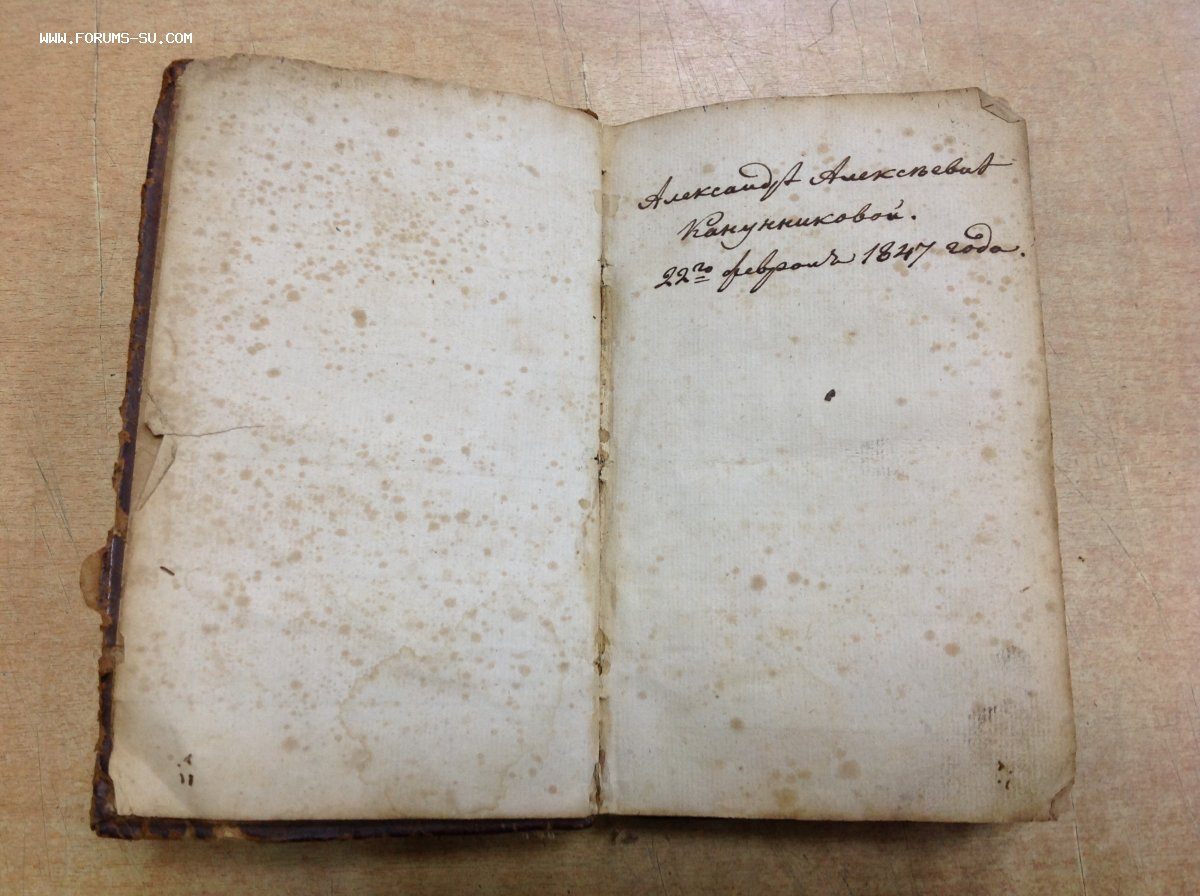 WWW.FORUMS-SU.COM
Александрѣ Алексѣевнѣ
Канунниковой.
22го февраля 1847 года.